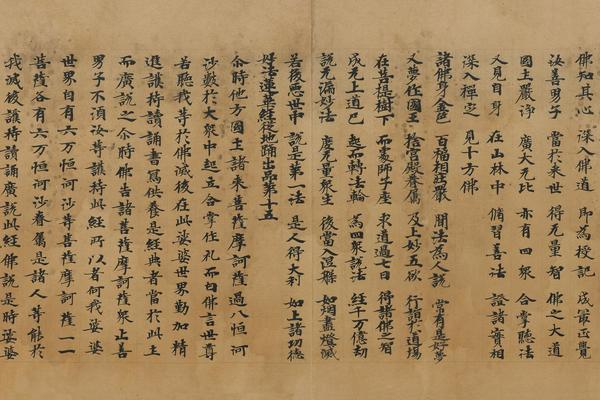 佛知其心 深入佛道 即為授記 成最正覺
汝善男子 當於来世 得无量智 佛之大道
國土嚴淨 廣大无比 亦有四衆 合掌聽法
又見自身 在山林中 脩習善法 證諸實相
深入禪定 見十方佛
諸佛身金色 百福相荘嚴 聞法為人說 常有是好夢
又夢作國王 捨宮殿眷屬 及上妙五欲 行詣於道場
在菩提樹下 而處師子座 求道過七日 得諸佛之智
成无上道已 起而轉法輪 為四衆說法 經千万億劫
說无漏妙法 度无量衆生 後當入涅槃 如烟盡燈滅
若後悪世中 說是第一法 是人得大利 如上諸功德
妙法蓮華經從地踊出品第十五
尒時他方國土諸来菩薩摩訶薩過八恒河
沙數於大衆中起立合掌作礼而白佛言世尊
若聽我等於佛滅後在此娑婆世界勤加精
進護持讀誦書寫供養是經典者當於此土
而廣說之尒時佛告諸菩薩摩訶薩衆止善
男子不湏汝等護持此經所以者何我娑婆
世界自有六万恒河沙等菩薩摩訶薩一一
菩薩各有六万恒河沙眷屬是諸人等能於
我滅後護持讀誦廣說此經佛說是時娑婆